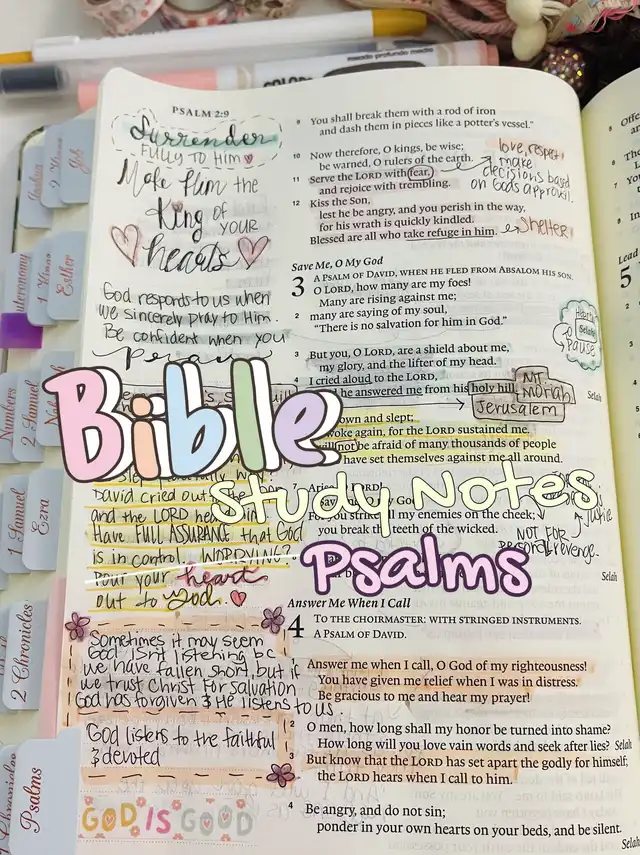 PSALM 2:9
Surrender
FULLY TO HIM
Make Him the
King of
YOUR
hearts
God responds to us when
we sincerely pray to Him.
Be confident when you
pray
David cried out
and the LORD
Have FULL ASSURANCE that God
is in control. WORRYING?
Pour your heart
out to God.
Sometimes it may seem
God isn't listening bc
we have fallen short, but if
we trust Christ For salvation
God has forgiven & He listens to us.
God listens to the faithful
& devoted
GOD IS GOOD
9 You shall break them with a rod of iron
and dash them in pieces like a potter's vessel."
10 Now therefore, O kings, be wise;
be warned, O rulers of the earth.
11 Serve the LORD with fear,
and rejoice with trembling.
12 Kiss the Son,
lest he be angry, and you perish in the way,
for his wrath is quickly kindled.
Blessed are all who take refuge in him.
love, respect,
make
decisions based
on Gods approval.
Shelter!
Save Me, O My God
3 A PSALM OF DAVID, WHEN HE FLED FROM ABSALOM HIS SON.
O LORD, how many are my foes!
Many are rising against me;
2 many are saying of my soul,
"There is no salvation for him in God."
Selah
PAUSE
3 But you, O LORD, are a shield about me,
my glory, and the lifter of my head.
4 I cried aloud to the LORD,
he answered me from his holy hill.
Selah
MT
Moriah
Jerusalem
own and slept;
woke again, for the LORD sustained me.
will not be afraid of many thousands of people
have set themselves against me all around.
7 LORD!
my God
For you strike all my enemies on the cheek;
you break the teeth of the wicked.
NOT FOR
personal revenge.
Selah
Bible
Study Notes
Psalms
Answer Me When I Call
4 TO THE CHOIRMASTER: WITH STRINGED INSTRUMENTS.
A PSALM OF DAVID.
1 Answer me when I call, O God of my righteousness!
You have given me relief when I was in distress.
Be gracious to me and hear my prayer!
2 O men, how long shall my honor be turned into shame?
How long will you love vain words and seek after lies? Selah
3 But know that the LORD has set apart the godly for himself;
the LORD hears when I call to him.
4 Be angry, and do not sin;
ponder in your own hearts on your beds, and be silent.
Selah
Job
Esther
Numbers
2 Samuel
1 Samuel
Ezra
2 Chronicles
Psalms
Lead
5